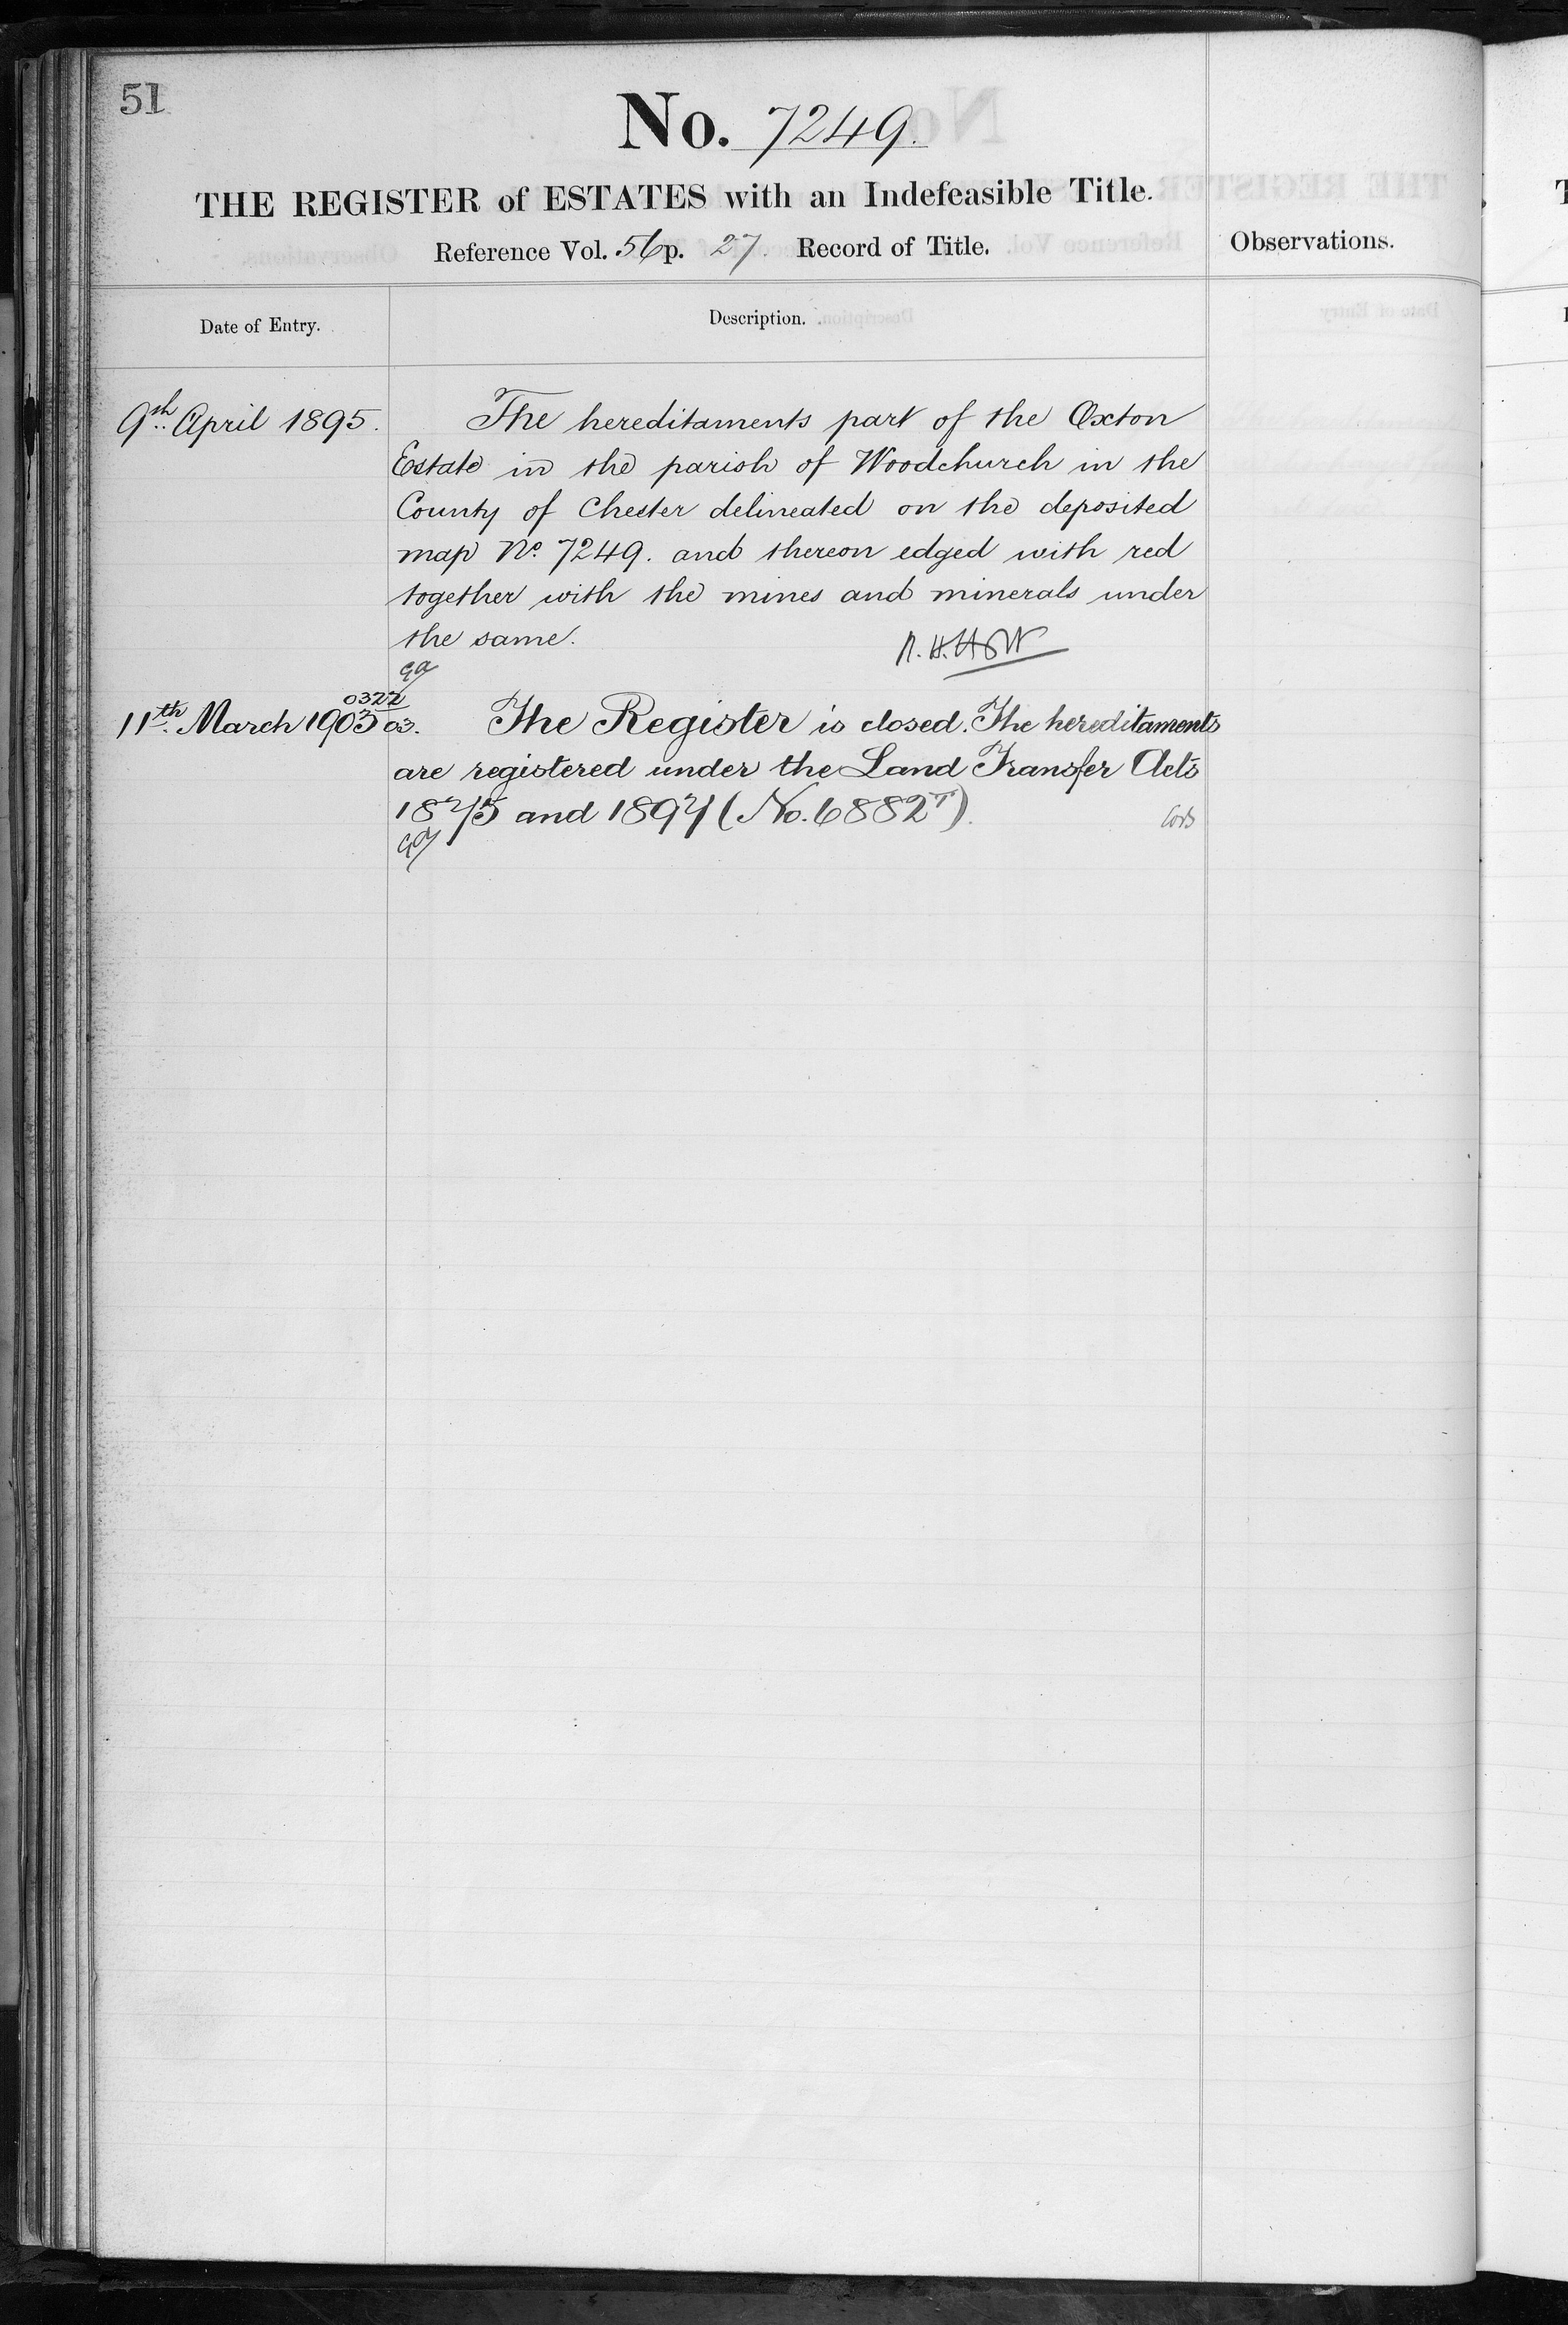 51
No. 7249.
THE REGISTER of ESTATES with an Indefeasible Title.
Reference Vol. 56 p. 27. Record of Title.
Observations.
Date of Entry.
Description.
9th April 1895.
The hereditaments part of the Oxton
Estate in the parish of Woodchurch in the
County of Chester delineated on the deposited
map No. 7249. and thereon edged with red
together with the mines and minerals under
the same.
11th March 1903
0322
03.
The Register is closed. The hereditaments
are registered under the Land Transfer Acts
1875 and 1897 (No. 6882T).